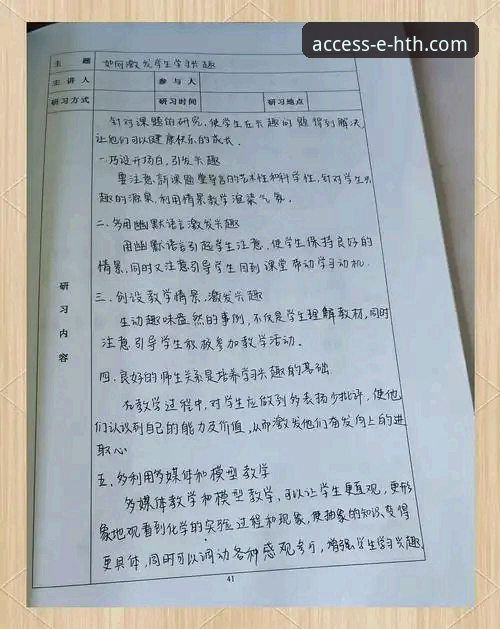 access-e-hth.com
主 题 如何激发学生学习兴趣
主 讲 人 参 与 人
研习方式 研习时间 研习地点
研习内容
针对课题的研究，使学生在兴趣问题得到解决，
让他们可以健康快乐的成长。
一.巧设开场白，引发兴趣
要注意新课题导言的艺术性和科学性，针对学生兴
趣的源泉，利用情景教学渲染气氛。
二、多用幽默语言激发兴趣
用幽默语言引起学生注意，使学生保持良好的
情景，同时又注意引导学生回到课堂带动学习动机.
三、创设教学情景，激发兴趣
生动趣味盎然的事例，不仅是学生理解教材，同时
注意引导学生积极参加教学活动.
四、良好的师生关系是培养学习兴趣的基础
在教学过程中，对学生应做到多表扬少批评，使他
们认识到自己的能力及价值，从而激发他们奋发向上的进
取心
五、多利用多媒体和模型教学
多媒体教学和模型教学，可以让学生更直观，更形
象地观看到化学的实验过程和现象，使抽象的知识变得
更具体，同时可以调动各种感观参与，增强学生学习兴趣
41